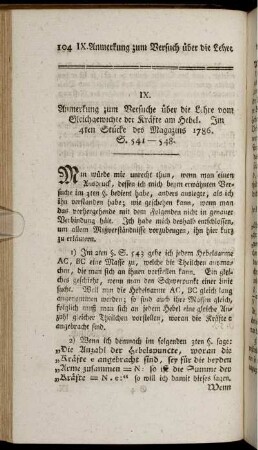 104 IX. Anmerkung zum Versuch über die Lehre
IX.
Anmerkung zum Versuche über die Lehre vom
Gleichgewichte der Kräfte am Hebel. Im
4ten Stücke des Magazins 1786.
S. 541—548.
Man würde mir unrecht thun, wenn man einen
Ausdruck, dessen ich mich beym erwähnten Ver-
suche im 2ten §. bedient habe, anders auslegte, als ich
ihn verstanden habe; wie geschehen kann, wenn man
das vorhergehende mit dem folgenden nicht in genauer
Verbindung hält. Ich habe mich deshalb entschlossen,
um allem Mißverständnisse vorzubeugen, ihn hier kurz
zu erläutern.
1) Im 2ten §. S. 543 gebe ich jedem Hebelsarme
AC, BC eine Masse zu, welche die Theilchen ausma-
chen, die man sich an ihnen vorstellen kann. Ein glei-
ches geschieht, wenn man den Schwerpunkt einer Linie
sucht. Weil nun die Hebelsarme AC, BC gleich lang
angenommen werden; so sind auch ihre Massen gleich,
folglich muß man sich an jedem Hebelsarme eine An-
zahl gleicher Theilchen vorstellen, woran die Kräfte e
angebracht sind.
2) Wenn ich demnach im folgenden 3ten §. sage:
„Die Anzahl der Hebelspuncte, woran die
„Kräfte e angebracht sind, sey für die beyden
„Arme zusammen = N: so ist die Summe der
„Kräfte = N. e:“ so will ich damit dieses sagen.
Wenn